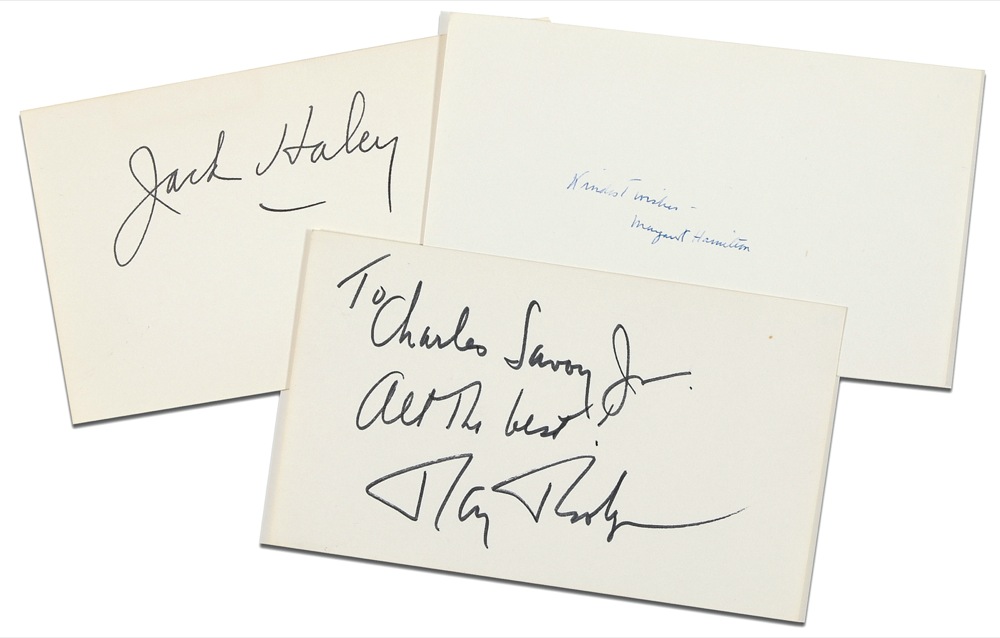 Jack Haley
Kindest wishes -
Margaret Hamilton
To
Charles Savoy Jr.
All The best!
Ray Bolger